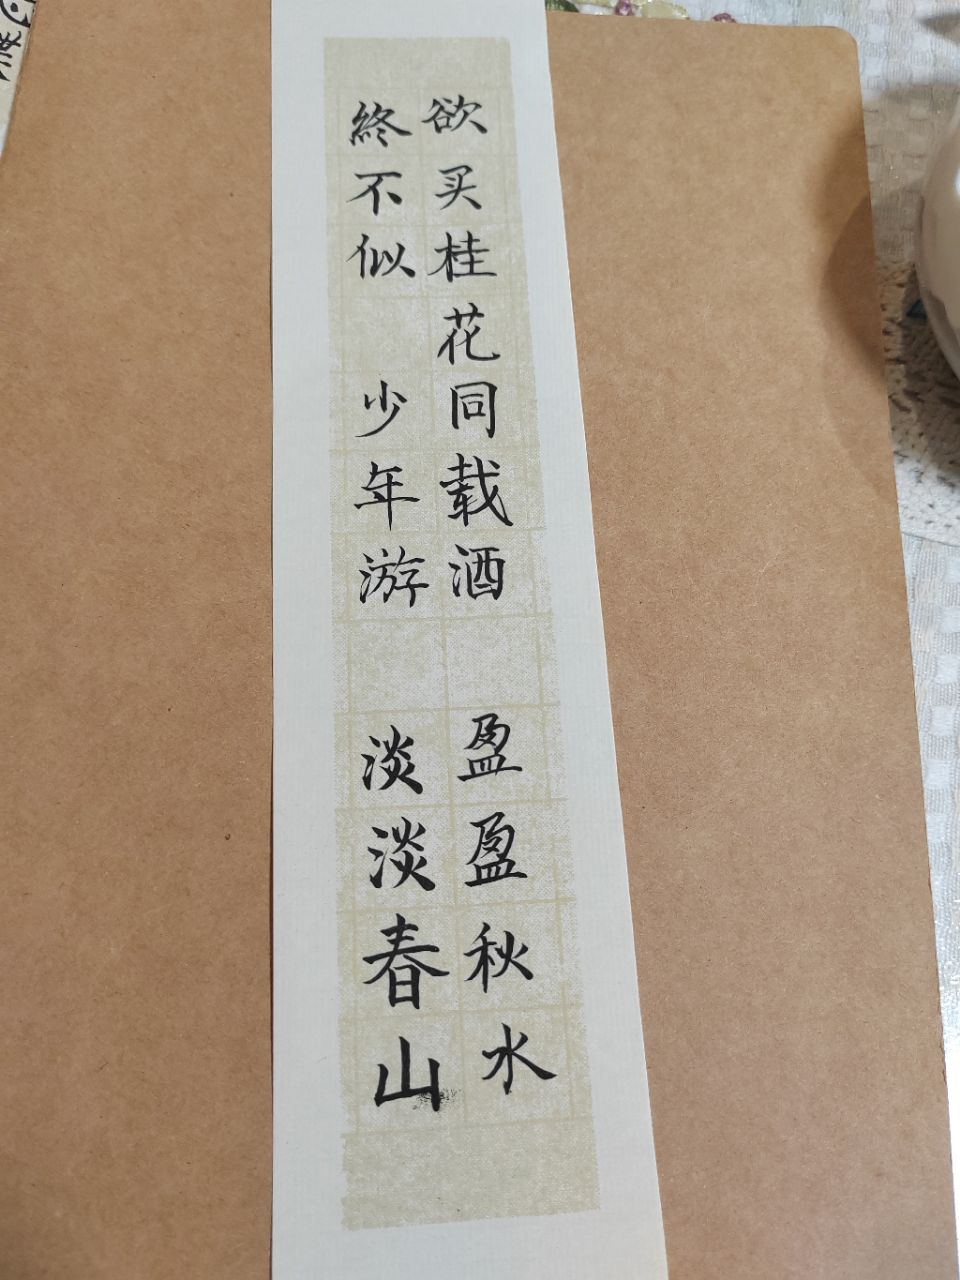 欲买桂花同载酒
終不似 少年游
盈盈秋水
淡淡春山